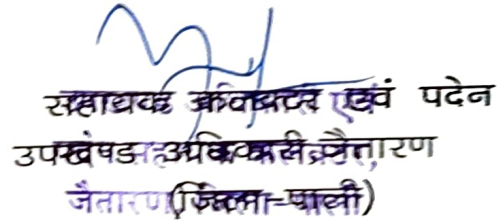 सहायक कलक्टर एवं पदेन
उपखंड अधिकारी, जैतारण
जैतारण (जिला-पाली)